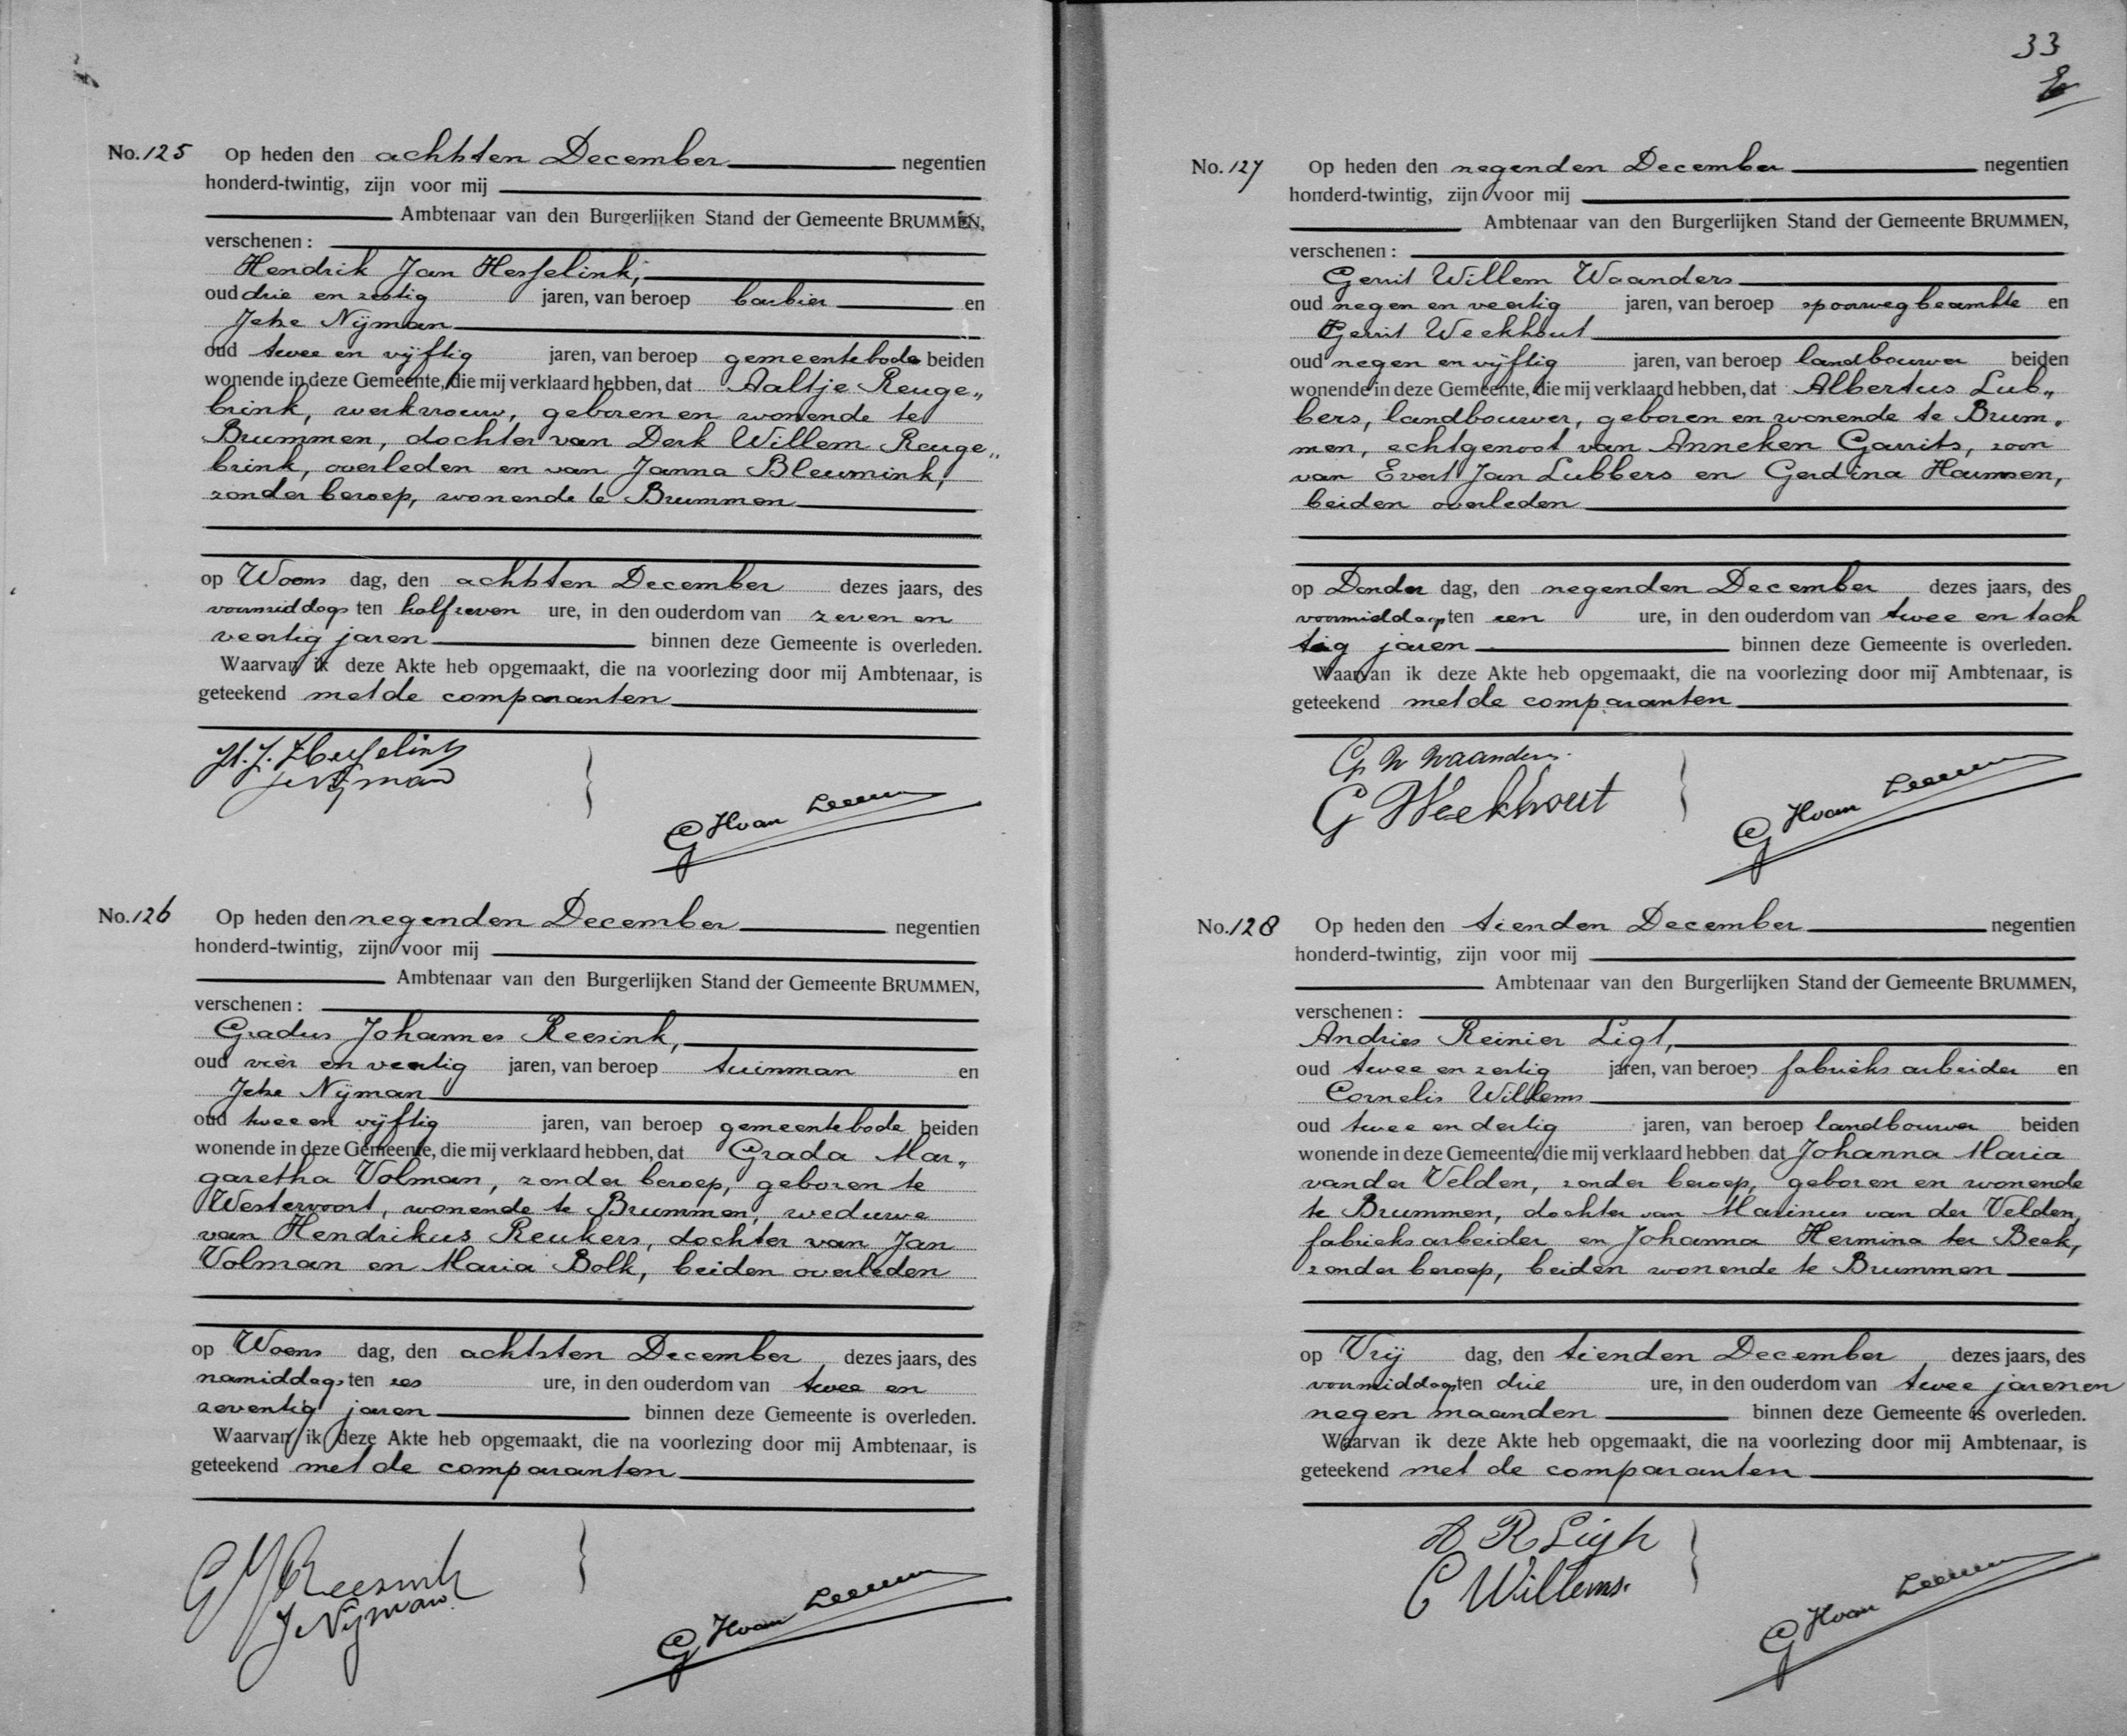 No. 125 Op heden den achtsten December negentien
honderd-twintig, zijn voor mij
Ambtenaar van den Burgerlijken Stand der Gemeente BRUMMEN,
verschenen :
Hendrik Jan Hesselink,
oud drie en zestig jaren, van beroep barbier en
Jehe Nijman
oud twee en vijftig jaren, van beroep gemeentebode beiden
wonende in deze Gemeente, die mij verklaard hebben, dat Aaltje Reuge„
brink, werkvrouw, geboren en wonende te
Brummen, dochter van Derk Willem Reuge„
brink, overleden en van Janna Bleumink,
zonder beroep, wonende te Brummen
op Woens dag, den achtsten December dezes jaars, des
voormiddags ten half zeven ure, in den ouderdom van zeven en
veertig jaren binnen deze Gemeente is overleden.
Waarvan ik deze Akte heb opgemaakt, die na voorlezing door mij Ambtenaar, is
geteekend met de comparanten
H. J. Hesselink
J Nijman
G H van Leeuwen
No. 126 Op heden den negenden December negentien
honderd-twintig, zijn voor mij
Ambtenaar van den Burgerlijken Stand der Gemeente BRUMMEN,
verschenen :
Gradus Johannes Reesink,
oud vier en veertig jaren, van beroep tuinman en
Jehe Nijman
oud twee en vijftig jaren, van beroep gemeentebode beiden
wonende in deze Gemeente, die mij verklaard hebben, dat Grada Mar„
garetha Volman, zonder beroep, geboren te
Westervoort, wonende te Brummen, weduwe
van Hendrikus Reukers, dochter van Jan
Volman en Maria Bolk, beiden overleden
op Woens dag, den achtsten December dezes jaars, des
namiddags ten zes ure, in den ouderdom van twee en
zeventig jaren binnen deze Gemeente is overleden.
Waarvan ik deze Akte heb opgemaakt, die na voorlezing door mij Ambtenaar, is
geteekend met de comparanten
G J Reesink
J Nijman
G H van Leeuwen
33
No. 127 Op heden den negenden December negentien
honderd-twintig, zijn voor mij
Ambtenaar van den Burgerlijken Stand der Gemeente BRUMMEN,
verschenen :
Gerrit Willem Waanders
oud negen en veertig jaren, van beroep spoorwegbeambte en
Gerrit Weekhout
oud negen en vijftig jaren, van beroep landbouwer beiden
wonende in deze Gemeente, die mij verklaard hebben, dat Albertus Lub„
bers, landbouwer, geboren en wonende te Brum„
men, echtgenoot van Anneken Garrits, zoon
van Evert Jan Lubbers en Gerdina Harmsen,
beiden overleden
op Donder dag, den negenden December dezes jaars, des
voormiddags ten een ure, in den ouderdom van twee en tach
tig jaren binnen deze Gemeente is overleden.
Waarvan ik deze Akte heb opgemaakt, die na voorlezing door mij Ambtenaar, is
geteekend met de comparanten
G W Waanders.
G Weekhout
G H van Leeuwen
No. 128 Op heden den tienden December negentien
honderd-twintig, zijn voor mij
Ambtenaar van den Burgerlijken Stand der Gemeente BRUMMEN,
verschenen :
Andries Reinier Ligt,
oud twee en zestig jaren, van beroep fabrieksarbeider en
Cornelis Willems
oud twee en dertig jaren, van beroep landbouwer beiden
wonende in deze Gemeente, die mij verklaard hebben dat Johanna Maria
van der Velden, zonder beroep, geboren en wonende
te Brummen, dochter van Marinus van der Velden,
fabrieksarbeider en Johanna Hermina ter Beek,
zonder beroep, beiden wonende te Brummen
op Vrij dag, den tienden December dezes jaars, des
voormiddags ten drie ure, in den ouderdom van twee jaren en
negen maanden binnen deze Gemeente is overleden.
Waarvan ik deze Akte heb opgemaakt, die na voorlezing door mij Ambtenaar, is
geteekend met de comparanten
A R Ligt
C Willems.
G H van Leeuwen